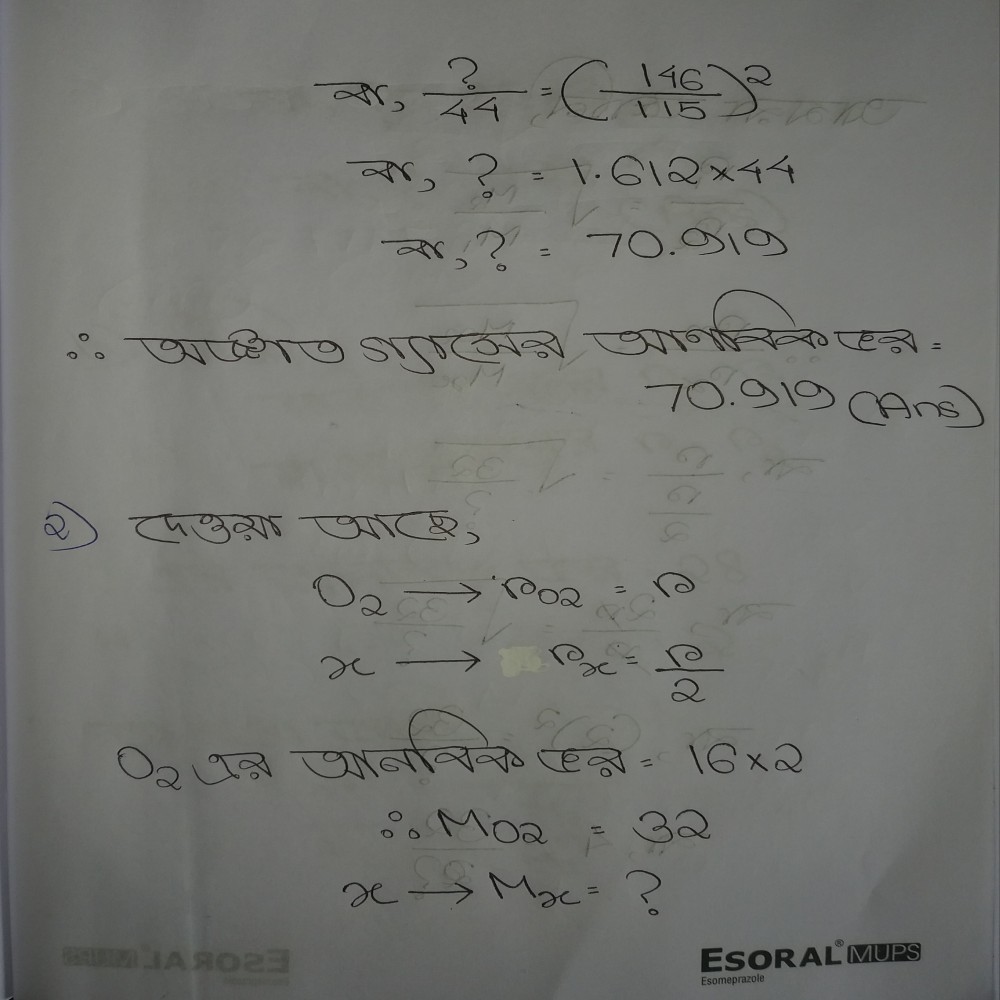 বা, ?/44 = (146/115)2
বা, ? = 1.612×44
বা, ? = 70.919
∴ অজ্ঞাত গ্যাসের আণবিক ভর =
70.919 (Ans)
২) দেওয়া আছে,
O2 → rO2 = r
x → rx = r/2
O2 এর আনবিক ভর = 16×2
∴ MO2 = 32
x → Mx = ?
ESORAL® MUPS
Esomeprazole